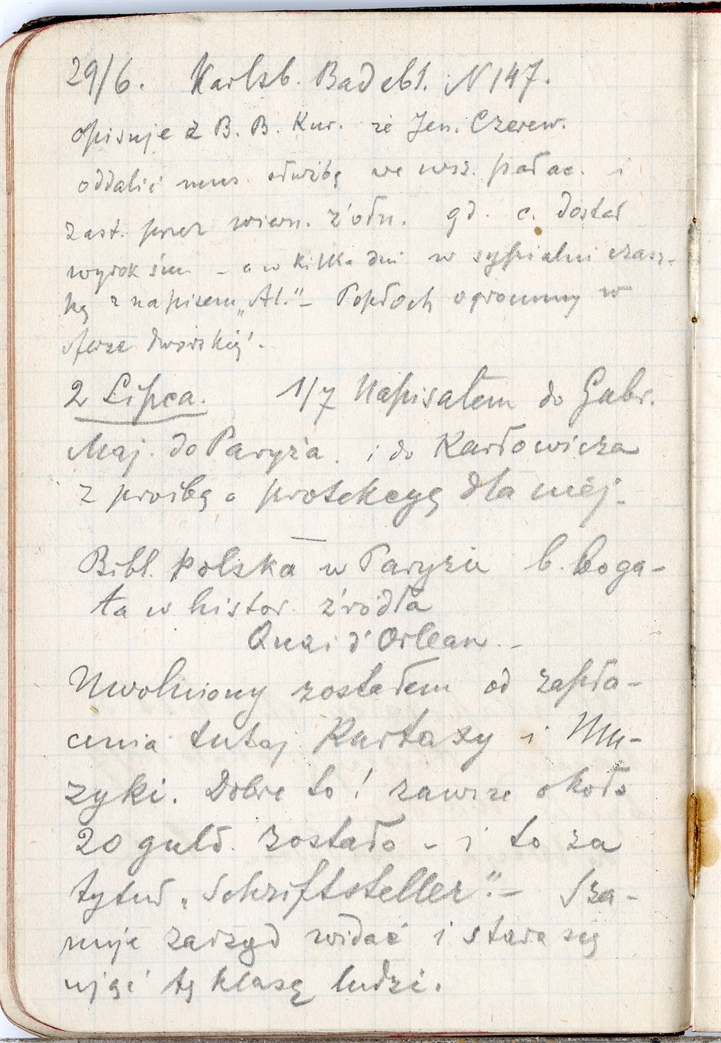 29/6. Karlsb. Badebl. N 147.
opisuje z B. B. Kur. że Jen. Czerew.
oddalić mus. służbę we wsz. pałac. i
zast. przez wiern. żołn. gd. c. dostał
wyrok śm. – a w kilka dni w sypialni czasz-
kę z napisem „Al." – Popłoch ogromny w
sferze dworskiéj.
2 Lipca. 1/7 Napisałem do Gabr.
Maj. do Paryża. i do Karłowicza
z prośbą o protekcyę dla niéj.
Bibl. polska w Paryżu b. boga-
ta w histor. źródła
Quai d'Orlean. –
Uwolniony zostałem od zapła-
cenia tutaj Kurtaxy i Mu-
zyki. Dobre to! zawsze około
20 guld. zostało – i to za
tytuł „Schriftsteller". – Sza-
nuje zarząd widać i stara się
ująć tę klasę ludzi.